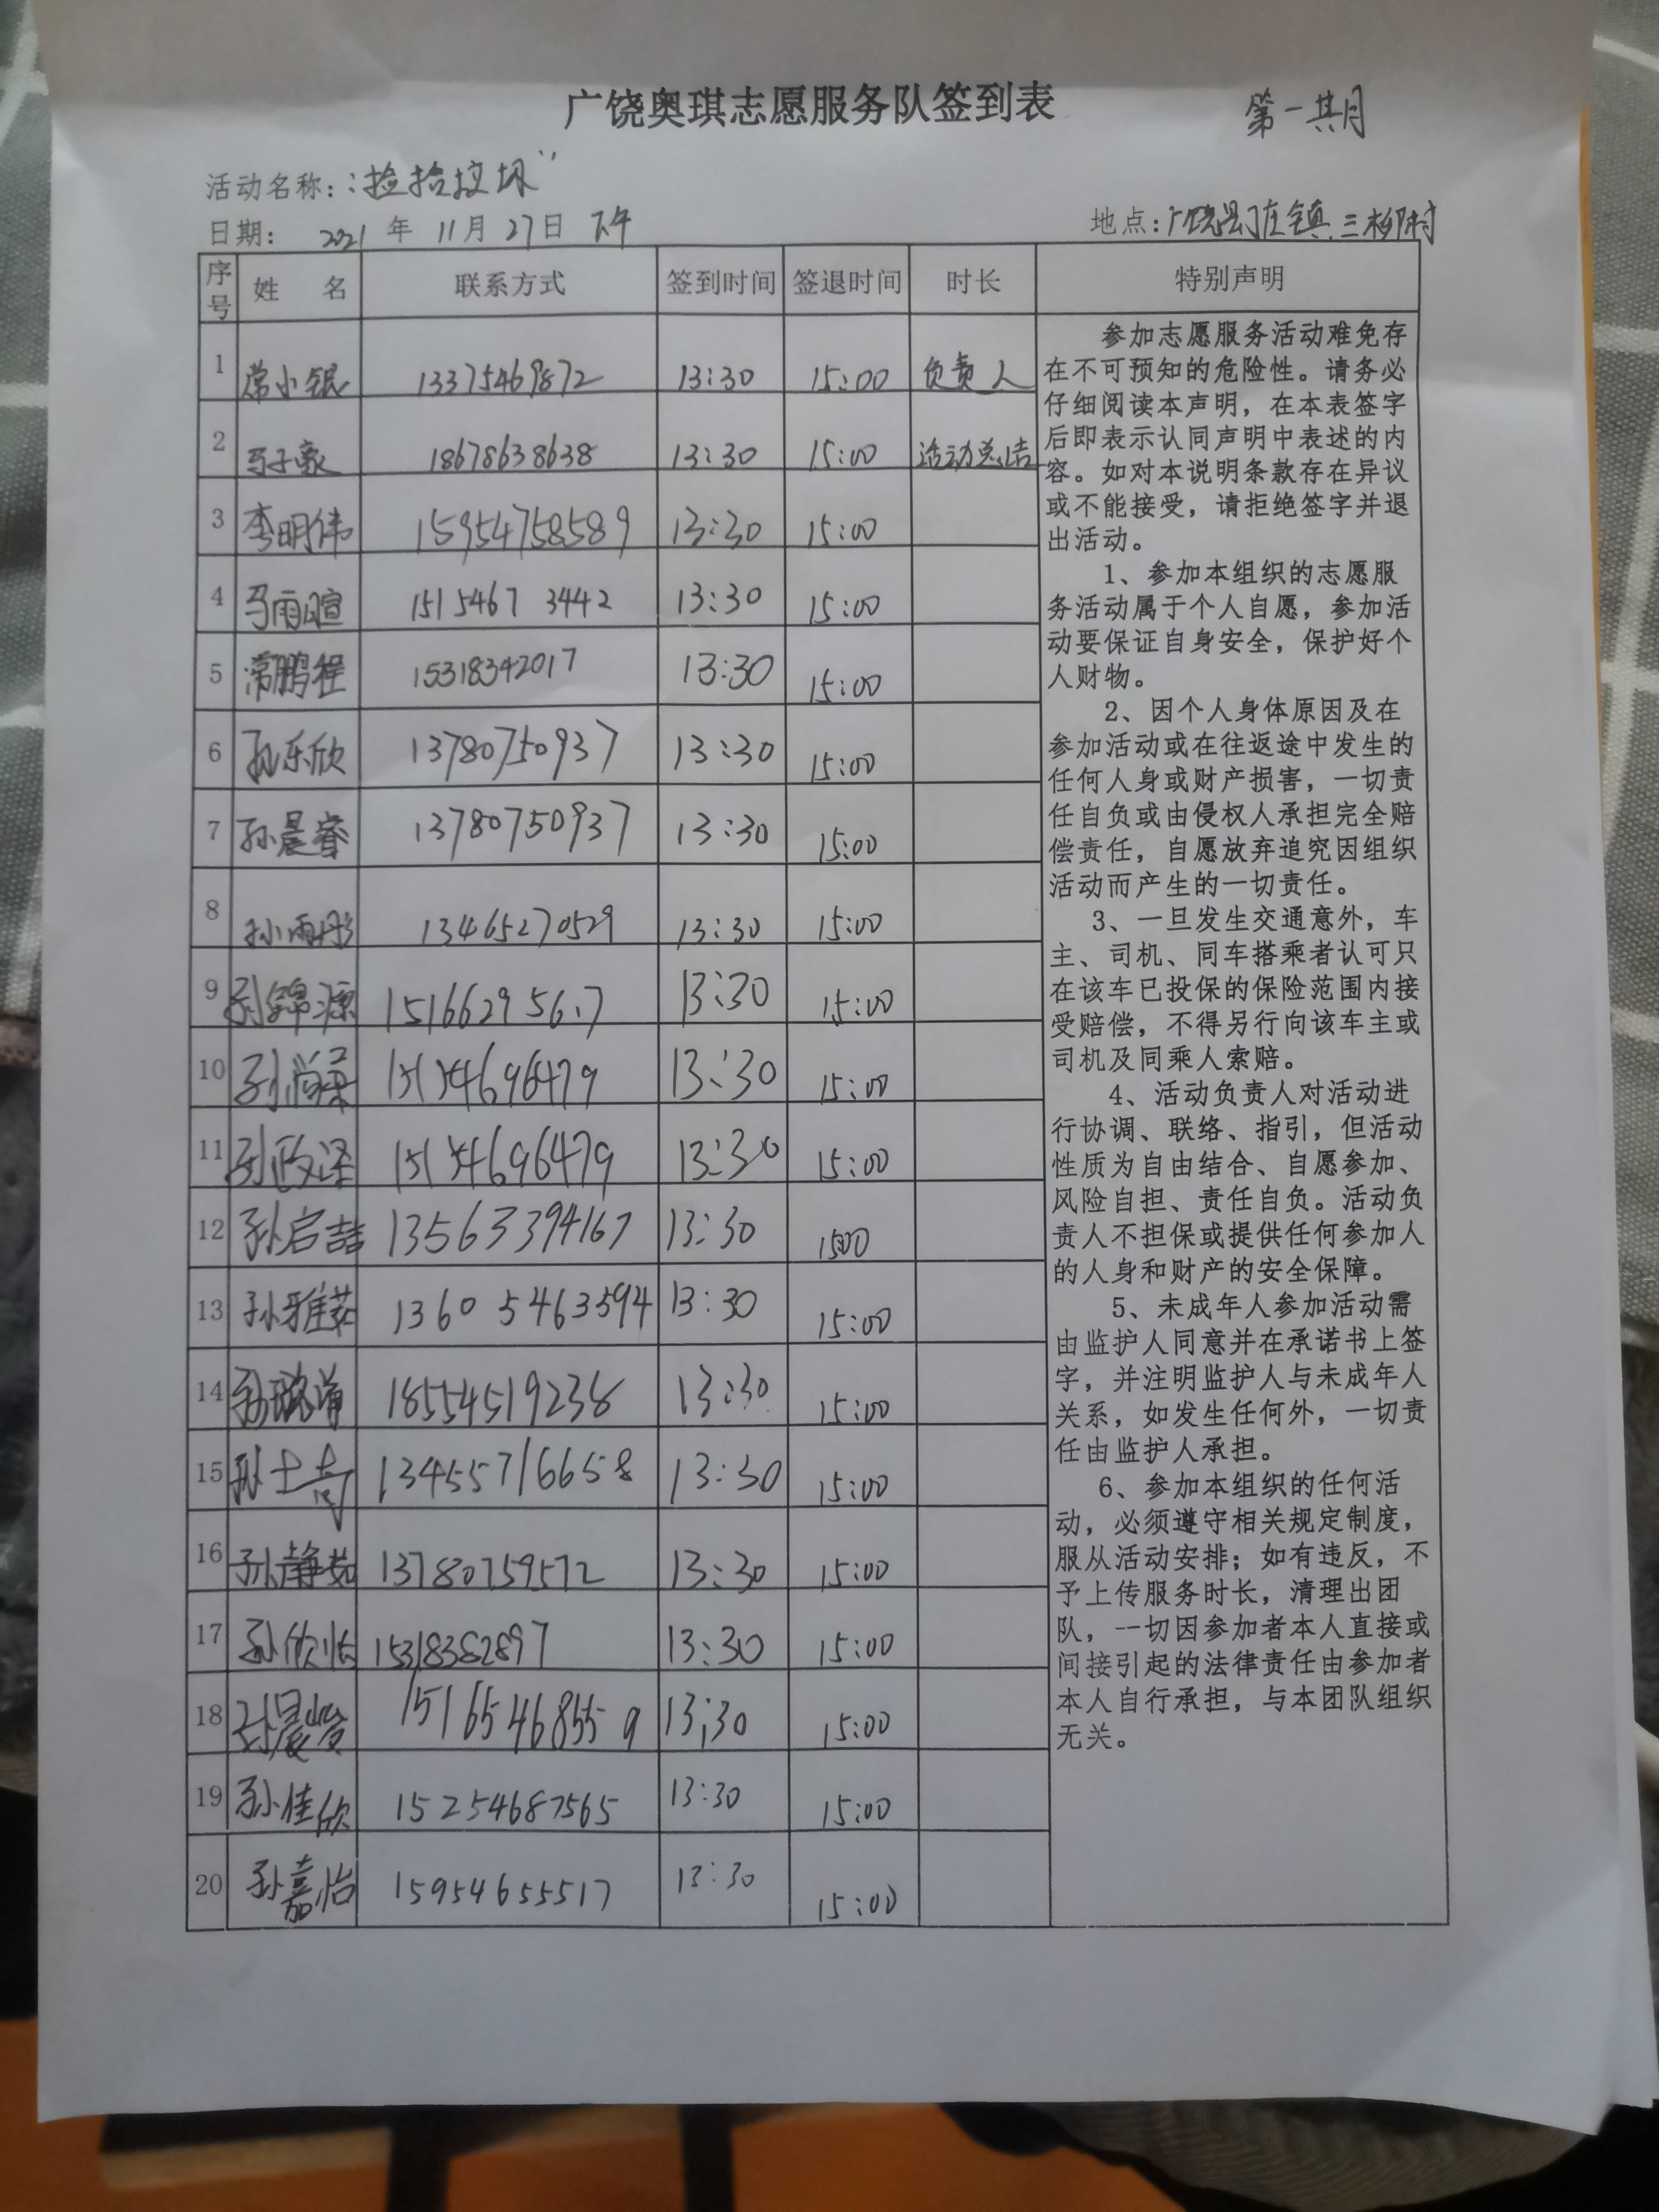 广饶奥琪志愿服务队签到表
第一期
活动名称:“捡拾垃圾”
日期: 2021 年 11月 27日 下午
地点:广饶县丁庄镇三柳村
序号 姓 名 联系方式 签到时间 签退时间 时长 特别声明
1 常小银 13375469872 13:30 15:00 负责人
2 马子豪 18678638638 13:30 15:00 活动总结
3 李明伟 15954758589 13:30 15:00
4 马雨暄 1515467 3442 13:30 15:00
5 常鹏程 15318342017 13:30 15:00
6 孙乐欣 13780750937 13:30 15:00
7 孙晨睿 13780750937 13:30 15:00
8 孙雨彤 13465270529 13:30 15:00
9 孙锦源 13:30 15:00
10 孙尚柔 15154696479 13:30 15:00
11 孙政泽 15154696479 13:30 15:00
12 孙启喆 13563394167 13:30 1500
13 孙雅茹 1360 5463594 13:30 15:00
14 孙 18554519238 13:30 15:00
15 孙士奇 13455716658 13:30 15:00
16 孙静茹 13780759572 13:30 15:00
17 孙欣怡 15318382897 13:30 15:00
18 孙晨峻 15165468559 13:30 15:00
19 孙佳欣 15254687565 13:30 15:00
20 孙嘉怡 15954655517 13:30 15:00
参加志愿服务活动难免存
在不可预知的危险性。请务必
仔细阅读本声明,在本表签字
后即表示认同声明中表述的内
容。如对本说明条款存在异议
或不能接受,请拒绝签字并退
出活动。
1、参加本组织的志愿服
务活动属于个人自愿,参加活
动要保证自身安全,保护好个
人财物。
2、因个人身体原因及在
参加活动或在往返途中发生的
任何人身或财产损害,一切责
任自负或由侵权人承担完全赔
偿责任,自愿放弃追究因组织
活动而产生的一切责任。
3、一旦发生交通意外,车
主、司机、同车搭乘者认可只
在该车已投保的保险范围内接
受赔偿,不得另行向该车主或
司机及同乘人索赔。
4、活动负责人对活动进
行协调、联络、指引,但活动
性质为自由结合、自愿参加、
风险自担、责任自负。活动负
责人不担保或提供任何参加人
的人身和财产的安全保障。
5、未成年人参加活动需
由监护人同意并在承诺书上签
字,并注明监护人与未成年人
关系,如发生任何外,一切责
任由监护人承担。
6、参加本组织的任何活
动,必须遵守相关规定制度,
服从活动安排;如有违反,不
予上传服务时长,清理出团
队,一切因参加者本人直接或
间接引起的法律责任由参加者
本人自行承担,与本团队组织
无关。